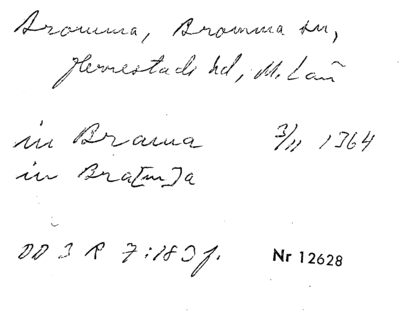 Bromma, Bromma sn,
Herrestads hd, M. Län
in Brama 3/11 1364
in Bra[m]a
DD 3 R 7:183 f. Nr 12628